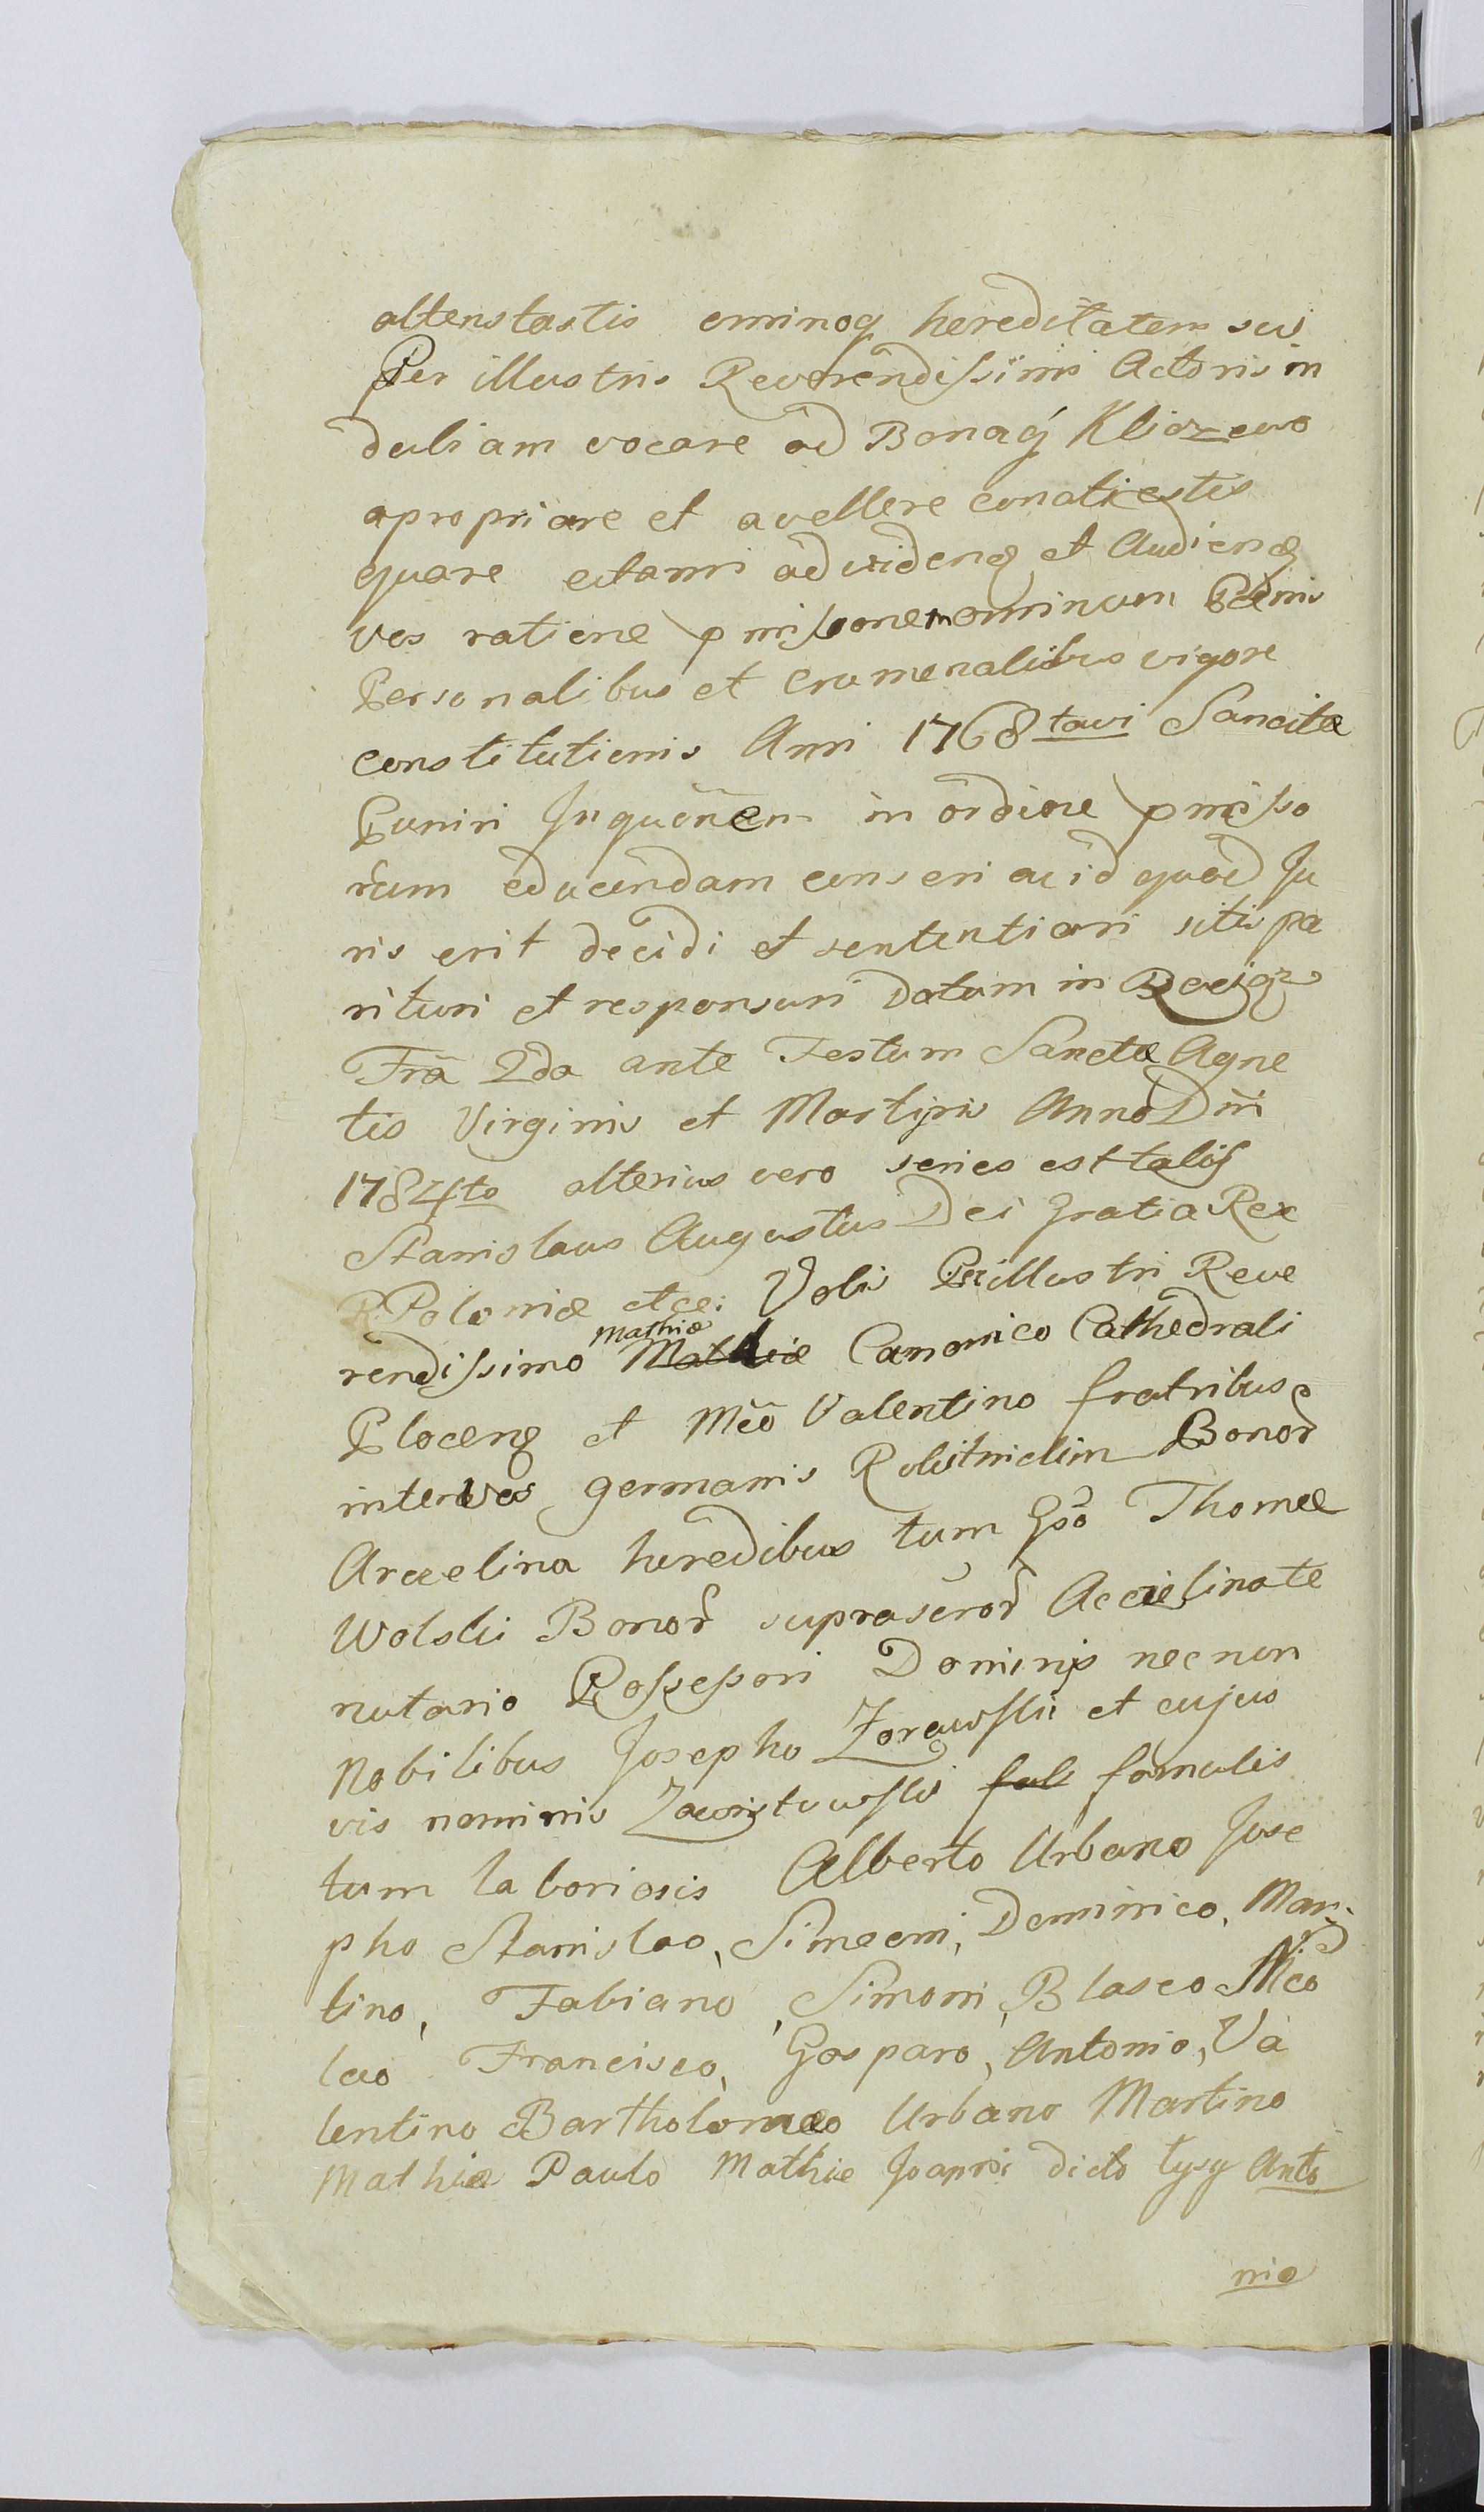 attentastis eminoq hereditatem sui
Per illustris Reverendissimi Actoris in
dubiam vocare ad Bonaq Kliczewo
apropriare et avellere conati estis
quare citamini ad vidend et Audiend
vos ratione pmissonem ominum Pænis
Personalibus et crumenalibus vigore
constitutionis Anni 1768tavi Sancitæ
Puniri Inquōnem in ordine pmisso
rum educendam censeri ac id quod Ju
ris erit decidi et sententiari sitis pa
rituri et responsuri Datum in Raciąz
Frã 2da ante Festum Sanctæ Agne
tis Virginis et Martyris Anno Dni
1784to alterius vero series est talis
Stanislaus Augustus Dei Gratia Rex
R Poloniæ etce: Vobis Perillustri Reve
rendissimo Mathiæ Mathiæ Canonico Cathedrali
Plocens et Mco Valentino fratribus
inter vos germanis Rościschewskim Bonor
Arcelina heredibus tum Gso Thomæ
Wolski Bonor suprascror Arcelina te
nutario Possessori Dominis nec non
Nobilibus Josepho Zorawski et cujus
vis nominis Zawistowski fal famulis
tum laboriosis Alberto Urbano Jose
pho Stanislao, Simeoni, Dominico, Mar
tino, Fabiano, Simoni, Blasco Nico
lao Francisco, Gasparo, Antonio, Va
lentino Bartholomæo Urbano Martino
Mathiæ Paulo Mathiæ Joanni dicto Łysy Anto
nio